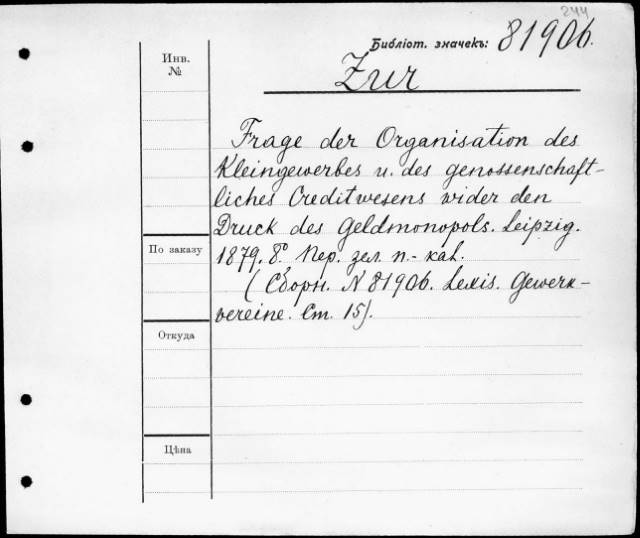 244
Библіот. значекъ: 81906.
Инв.
№
Zur
Frage der Organisation des
Kleingewerbes u. des genossenschaft-
liches Creditwesens wider den
Druck des Geldmonopols. Leipzig.
По заказу
1879. 8º. Пер. зел. п.- кал.
(Сборн. N 81906. Lexis. Gewerk-
vereine. Ст. 15).
Откуда
Цѣна